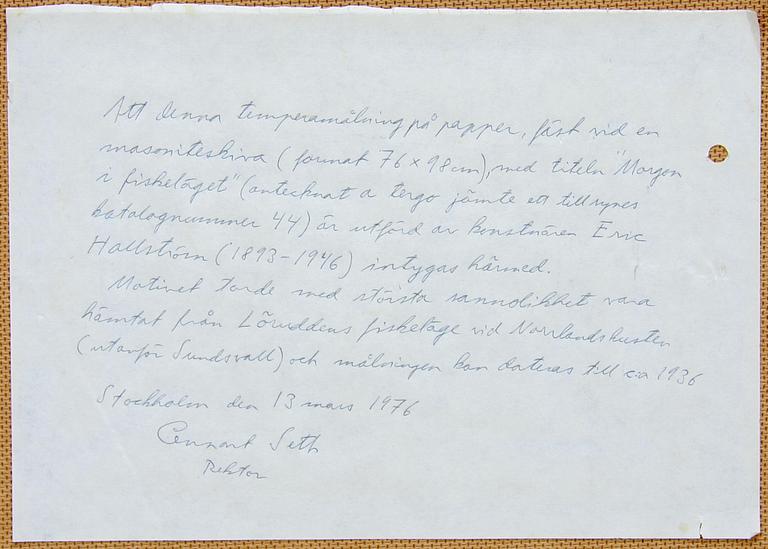 Att denna temperamålning på papper, fäst vid en
masoniteskiva (format 76 x 98 cm), med titeln "Morgon
i fiskeläget" (antecknat a tergo jämte ett till synes
katalognummer 44) är utförd av konstnären Eric
Hallström (1893-1946) intygas härmed.
Motivet torde med största sannolikhet vara
hämtat från Löruddens fiskeläge vid Norrlandskusten
(utanför Sundsvall) och målningen kan dateras till c:a 1936
Stockholm den 13 mars 1976
Lennart Seth
Rektor